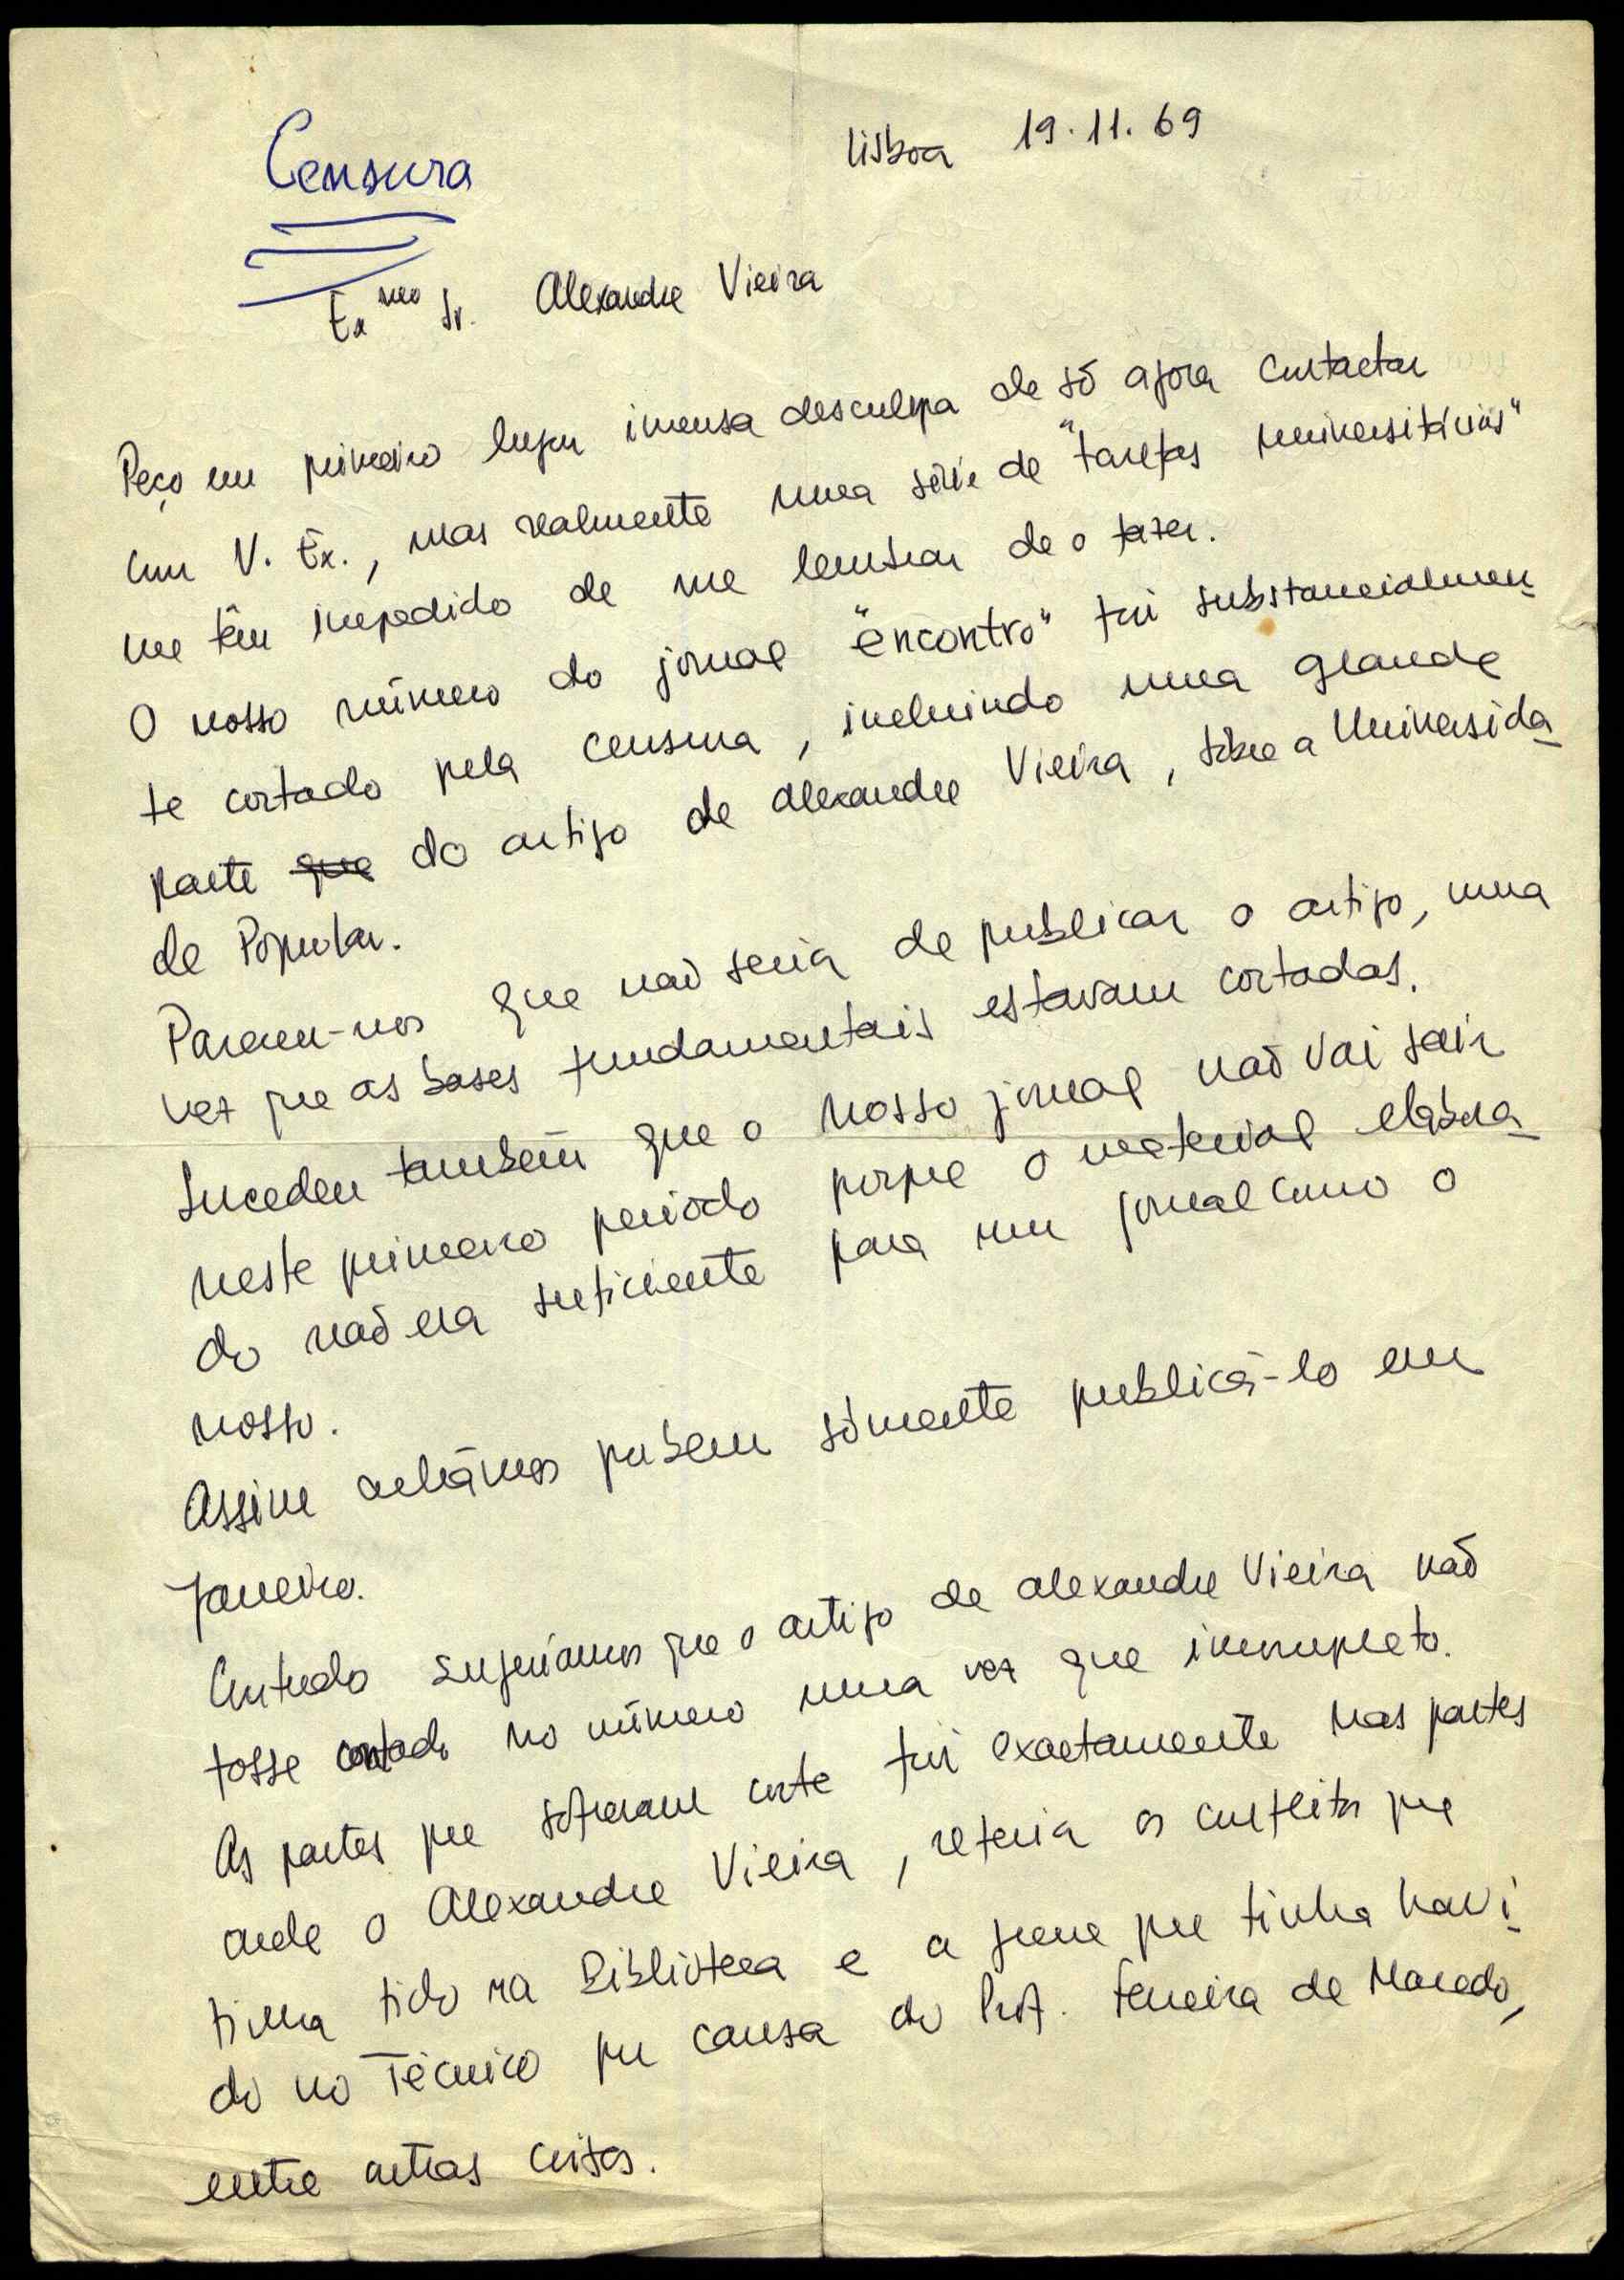 Censura
Lisboa 19.11.69
Ex mo Sr. Alexandre Vieira
Peço em primeiro lugar imensa desculpa de só agora contactar
com V. Ex., mas realmente uma série de "tarefas universitárias"
me têm impedido de me lembrar de o fazer.
O nosso número do jornal "encontro" foi substancialmen
te cortado pela censura, incluindo uma grande
parte que do artigo de Alexandre Vieira, sôbre a Universida
de Popular.
Pareceu-nos que não seria de publicar o artigo, uma
vez que as bases fundamentais estavam cortadas.
Sucedeu também que o nosso jornal não vai sair
neste primeiro período porque o material elabora
do não era suficiente para um jornal como o
nosso.
Assim achámos por bem sòmente publicá-lo em
Janeiro.
Contudo sugeríamos que o artigo de Alexandre Vieira não
fosse contado no número uma vez que incompleto.
As partes que sofreram corte foi exactamente nas partes
onde o Alexandre Vieira, referia os conflitos que
tinha tido na Biblioteca e a greve que tinha havi
do no Técnico por causa do Prof. Ferreira de Macedo,
entre outras coisas.